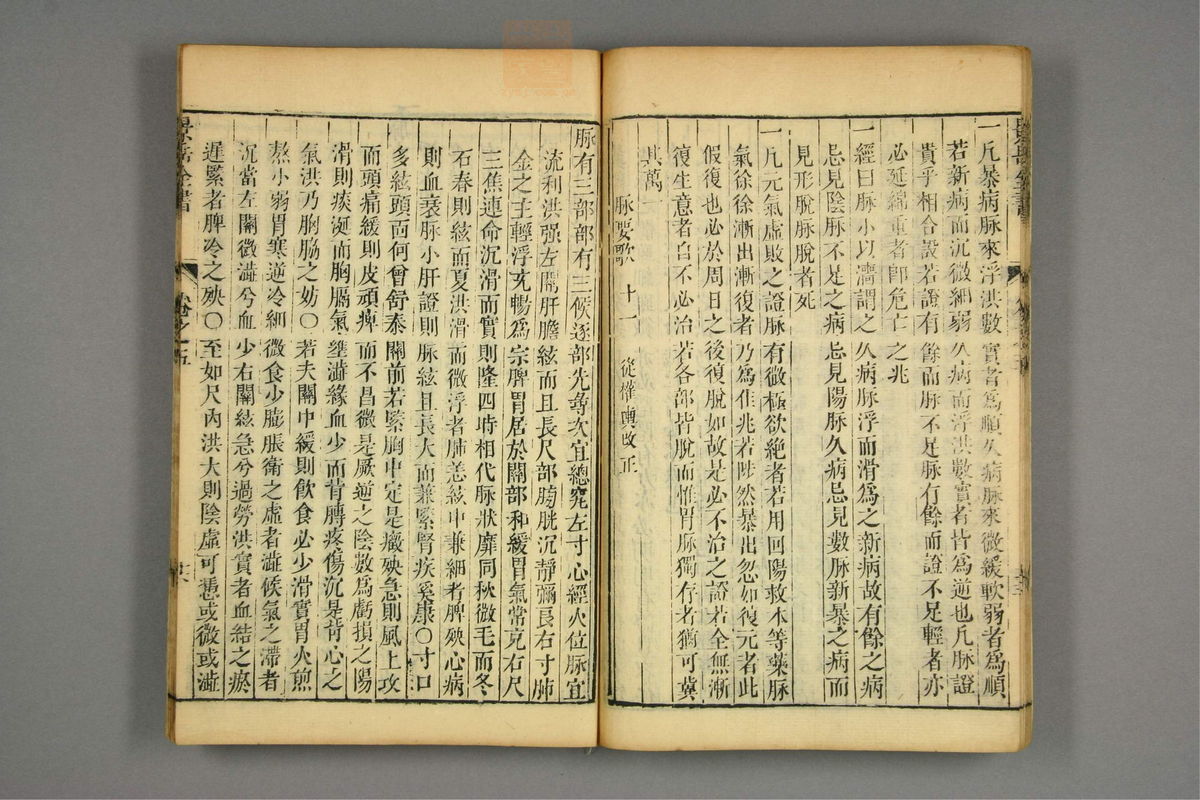 一凡暴病脉來浮洪數實者爲順久病脉來微緩軟弱者爲順
若新病而沉微細弱久病而浮洪數實者皆爲逆也凡脉證
貴乎相合設若證有餘而脉不足脉有餘而證不足輕者亦
必延綿重者卽危亡之兆
一經曰脉小以濇謂之久病脉浮而滑爲之新病故有餘之病
忌見陰脉不足之病忌見陽脉久病忌見數脉新暴之病而
見形脫脉脫者死
一凡元氣虛敗之證脉有微極欲絕者若用回陽救本等藥脉
氣徐徐漸出漸復者乃爲佳兆若陡然暴出忽如復元者此
假復也必於周日之後復脫如故是必不治之證若全無漸
復生意者自不必治若各部皆脫而惟胃脉獨存者猶可冀
其萬一
脉要歌 十一 從權輿改正
脉有三部部有三候逐部先尋次宜總究左寸心經火位脉宜
流利洪强左關肝膽絃而且長尺部膀胱沉靜彌長右寸肺
金之主輕浮充暢爲宗脾胃居於關部和緩胃氣常充右尺
三焦連命沉滑而實則隆四時相代脉狀靡同秋微毛而冬
石春則絃而夏洪滑而微浮者肺恙絃中兼細者脾殃心病
則血衰脉小肝證則脉絃且長大而兼緊腎疾奚康〇寸口
多絃頭面何曾舒泰關前若緊胸中定是癥殃急則風上攻
而頭痛緩則皮頑痺而不昌微是厥逆之陰數爲虧損之陽
滑則痰涎而胸膈氣壅濇緣血少而背膊疼傷沉是背心之
氣洪乃胸脇之妨〇若夫關中緩則飲食必少滑實胃火煎
熬小弱胃寒逆冷細微食少膨脹衛之虛者濇候氣之滯者
沉當左關微濇兮血少右關絃急兮過勞洪實者血結之瘀
遲緊者脾冷之殃〇至如尺內洪大則陰虛可慿或微或濇
景岳全書
卷之五